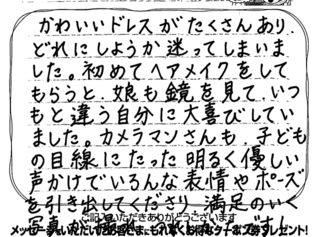 かわいいドレスがたくさんあり、
どれにしようか迷ってしまいま
した。初めてヘアメイクをして
もらうと、娘も鏡を見て、いつ
もと違う自分に大喜びしてい
ました。カメラマンさんも、子ども
の目線にたった明るく優しい
声かけでいろんな表情やポーズ
を引き出してくださり、満足のいく
ご記入いただきありがとうございます
写真が
です!